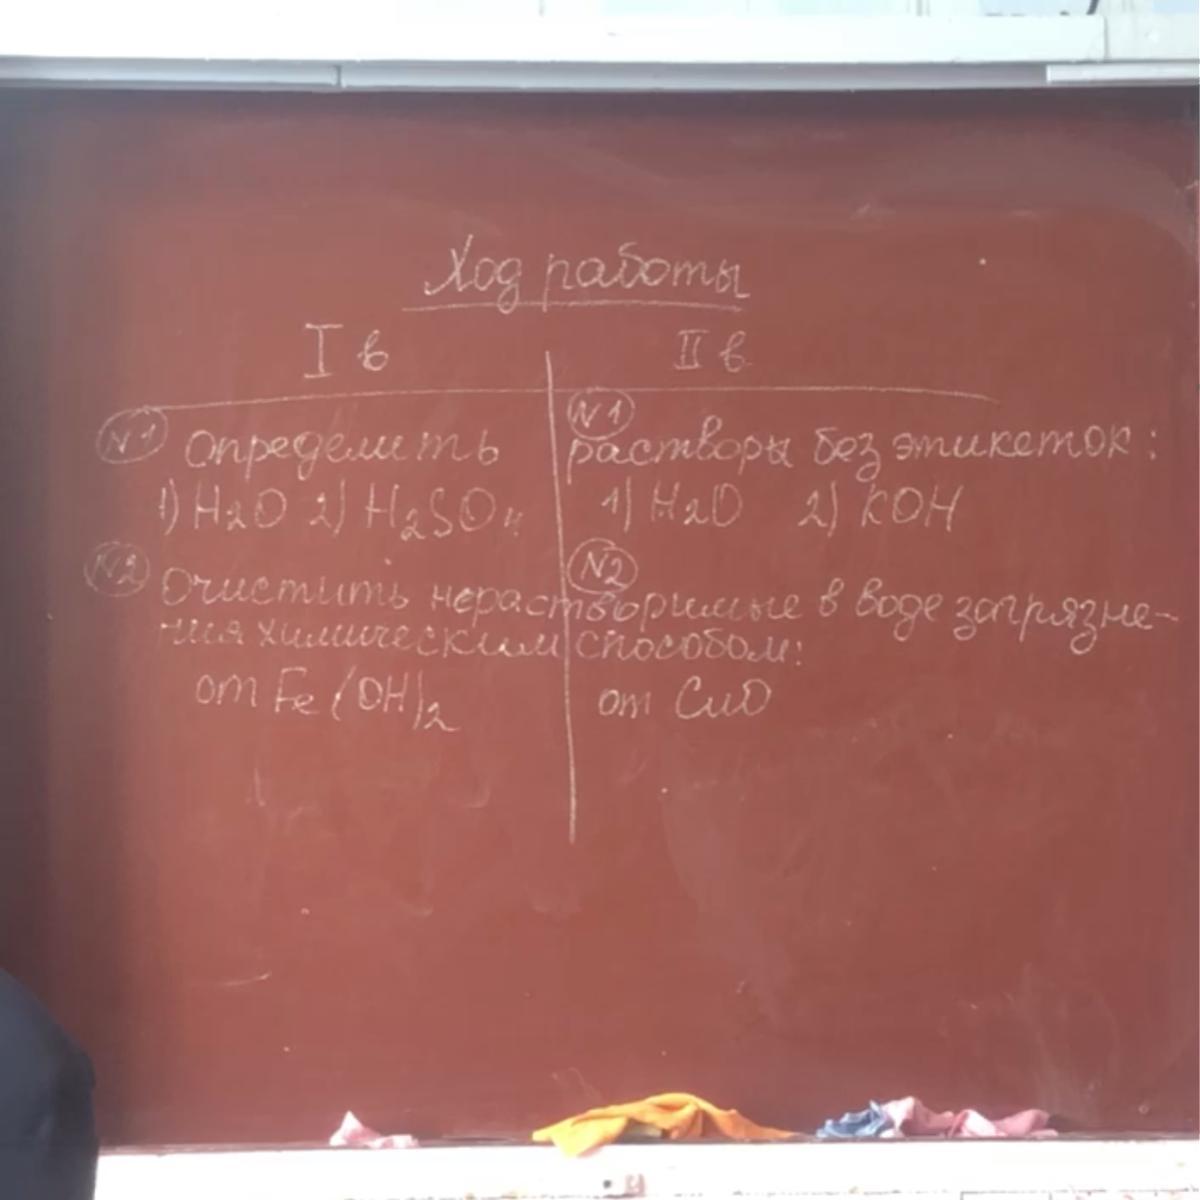 Ход работы
I в II в
N1 определить N1 растворы без этикеток:
1) H2O 2) H2SO4 1) H2O 2) KOH
N2 Очистить нерастворимые в воде загрязне-
N2
ния химическим способом:
от Fe(OH)2 от CuO